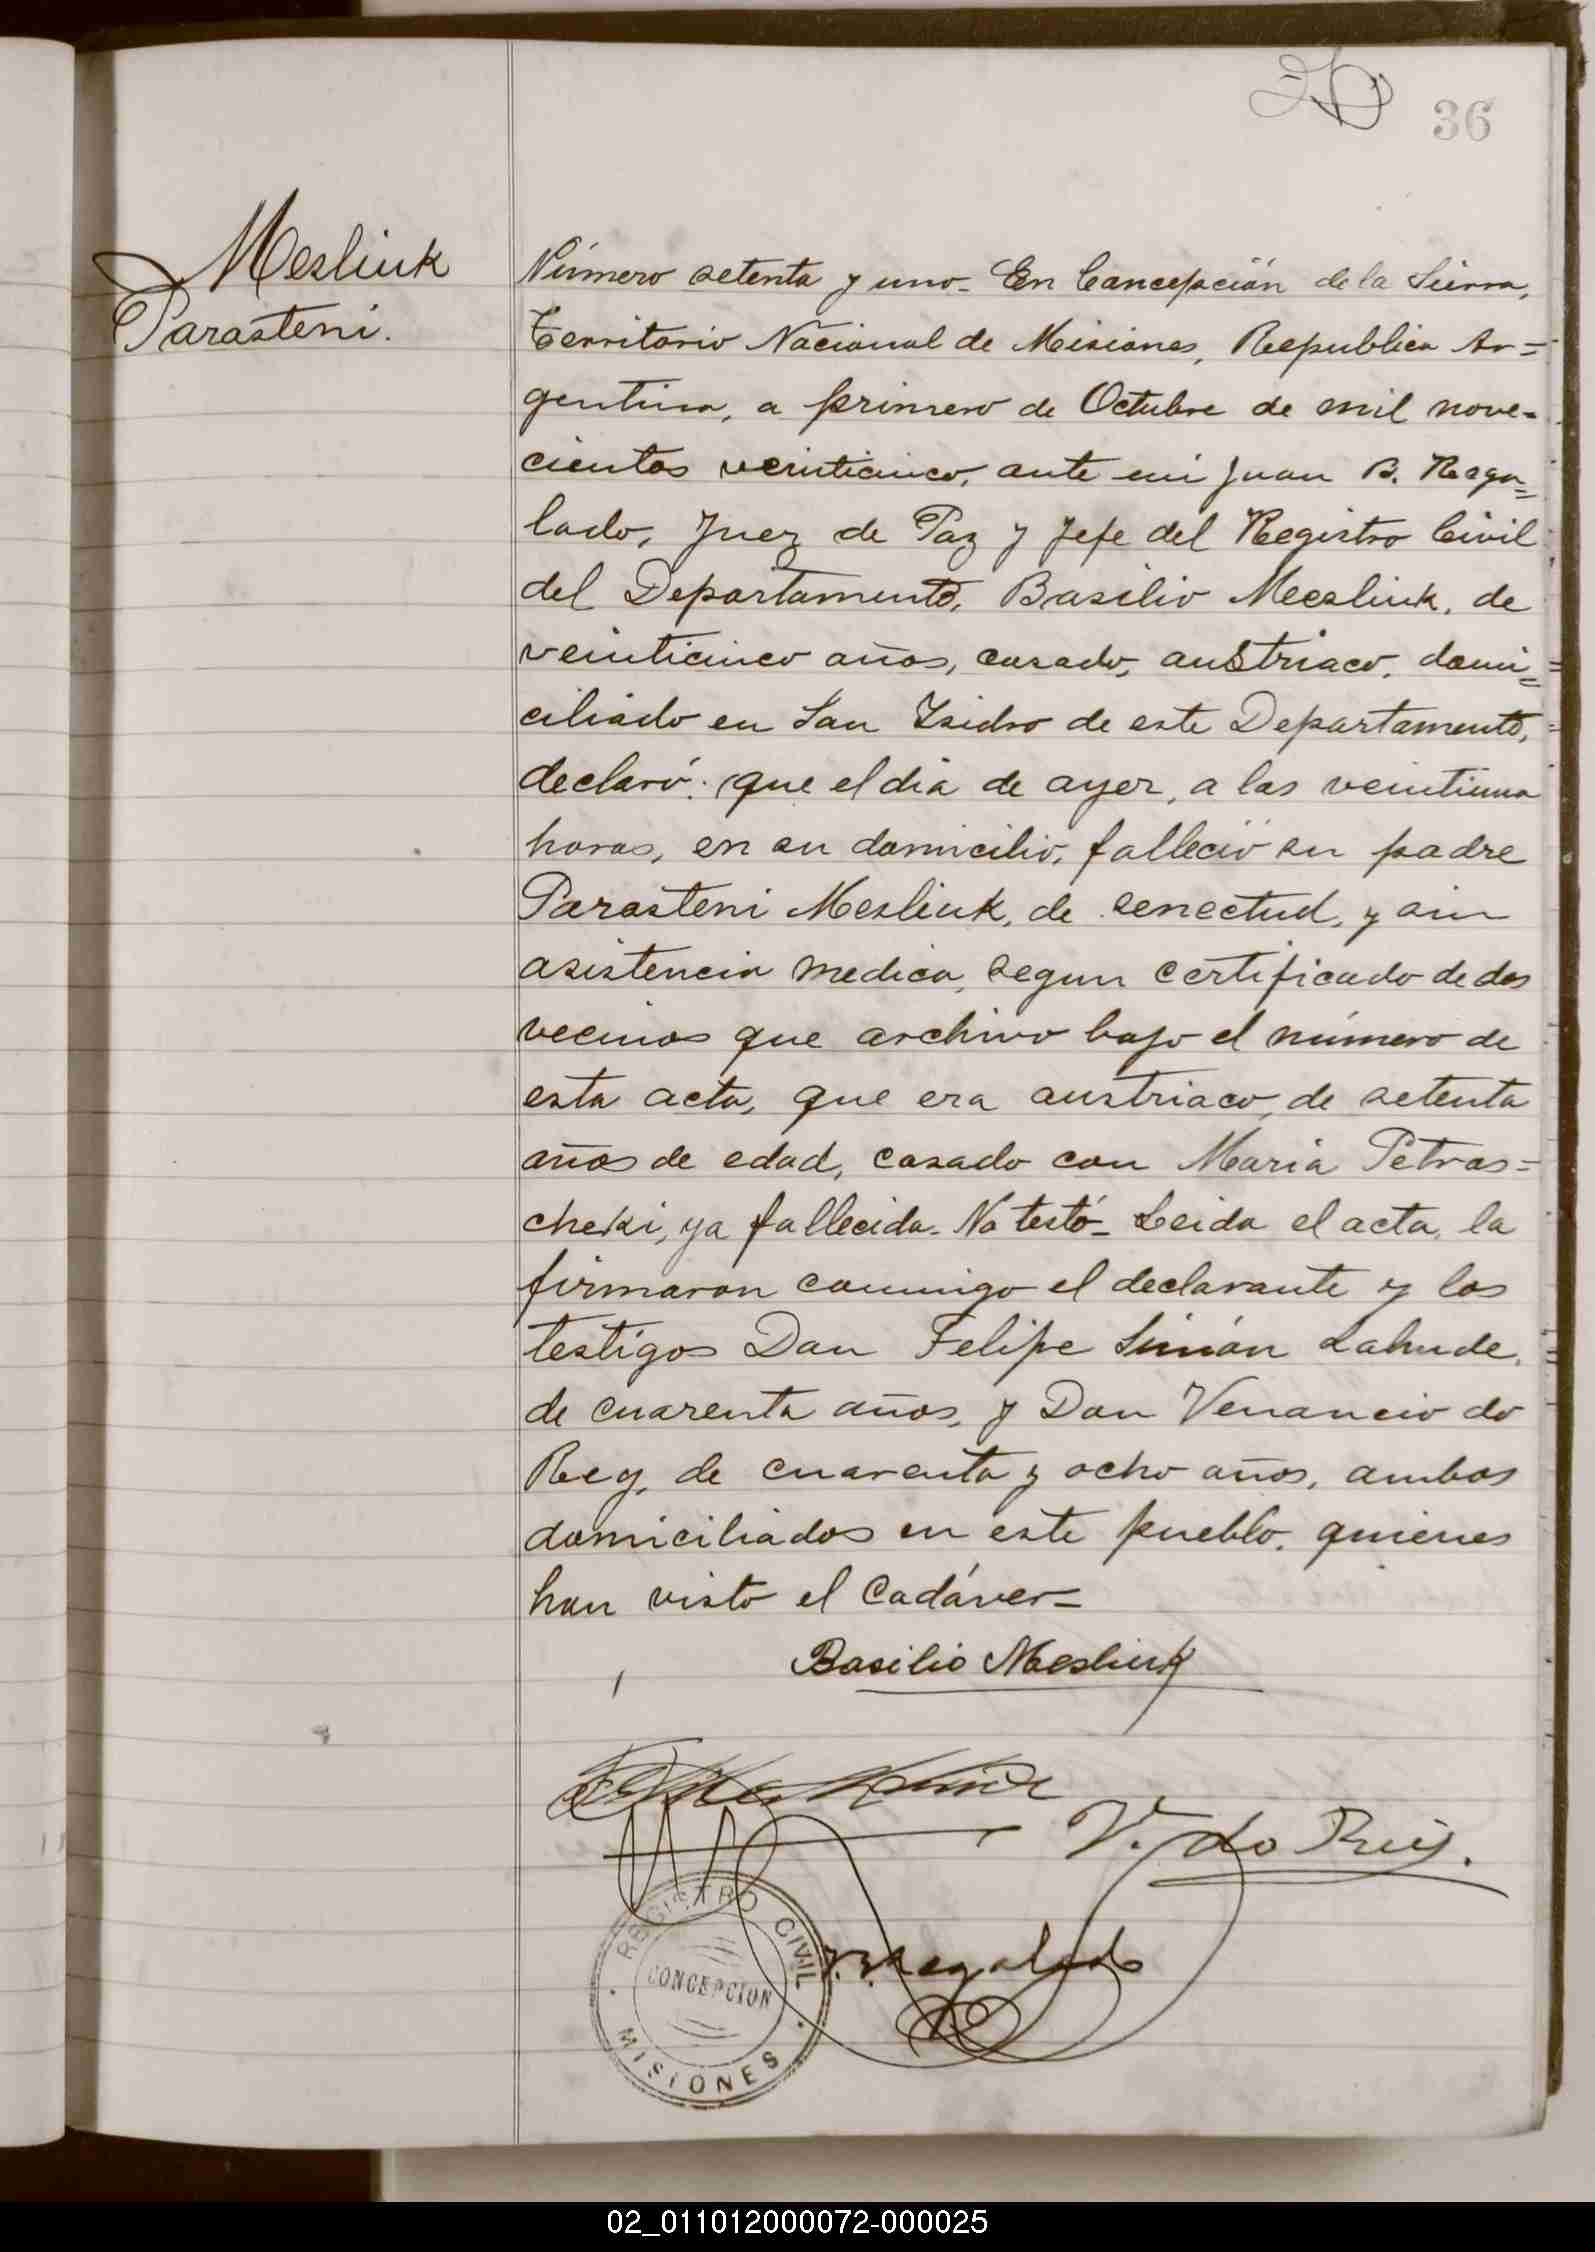 36
Mesliuk
Parasteni.
Número setenta y uno_ En Concepción de la Sierra,
Territorio Nacional de Misiones, Republica Ar=
gentina, a primero de Octubre de mil nove=
cientos veinticinco, ante mi Juan B. Rega=
lado, Juez de Paz y Jefe del Registro Civil
del Departamento, Basilio Mesliuk, de
veinticinco años, casado, austriaco, domi=
ciliado en San Isidro de este Departamento,
declaró: que el dia de ayer, a las veintiuna
horas, en su domicilio, falleció su padre
Parasteni Mesliuk, de senectud, y sin
asistencia medica, segun certificado de dos
vecinos que archivo bajo el número de
esta acta, que era austriaco, de setenta
años de edad, casado con Maria Petras=
cheki, ya fallecida. No testó_ Leida el acta, la
firmaron conmigo el declarante y los
testigos Don Felipe Simón Lahude,
de cuarenta años, y Don Venancio do
Rey, de cuarenta y ocho años, ambos
domiciliados en este pueblo, quienes
han visto el cadáver=
Basilio Mesliuk
V. do Rey.
J. B. Regalado
REGISTRO CIVIL
CONCEPCION
MISIONES
02_011012000072-000025